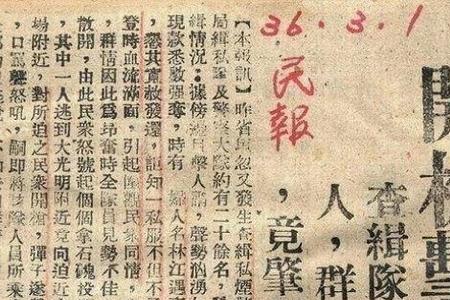 36.3.1
民報
開槍擊
查緝隊
人，群
，竟肇
【本報訊】昨省
忽又發生查緝私煙
局緝私隊及警察大隊約有二十餘名，
緝情況：據傍
人語，聲勢洶湧
現款悉數強奪，時有
婦人名林江邁
，懇其寬赦發還
知一私服不但不
登時血流滿面，引起傍觀民衆同情，
，群情因此為昂奮時全隊員見勢不佳
散開，由此民衆怒號起個個拿石磈投
，其中一人逃到大光明附近竟向迫近
場附近，對所迫之民衆開槍，彈子遂
，口罵聲怒吼，嗣即將
隊人員所乘